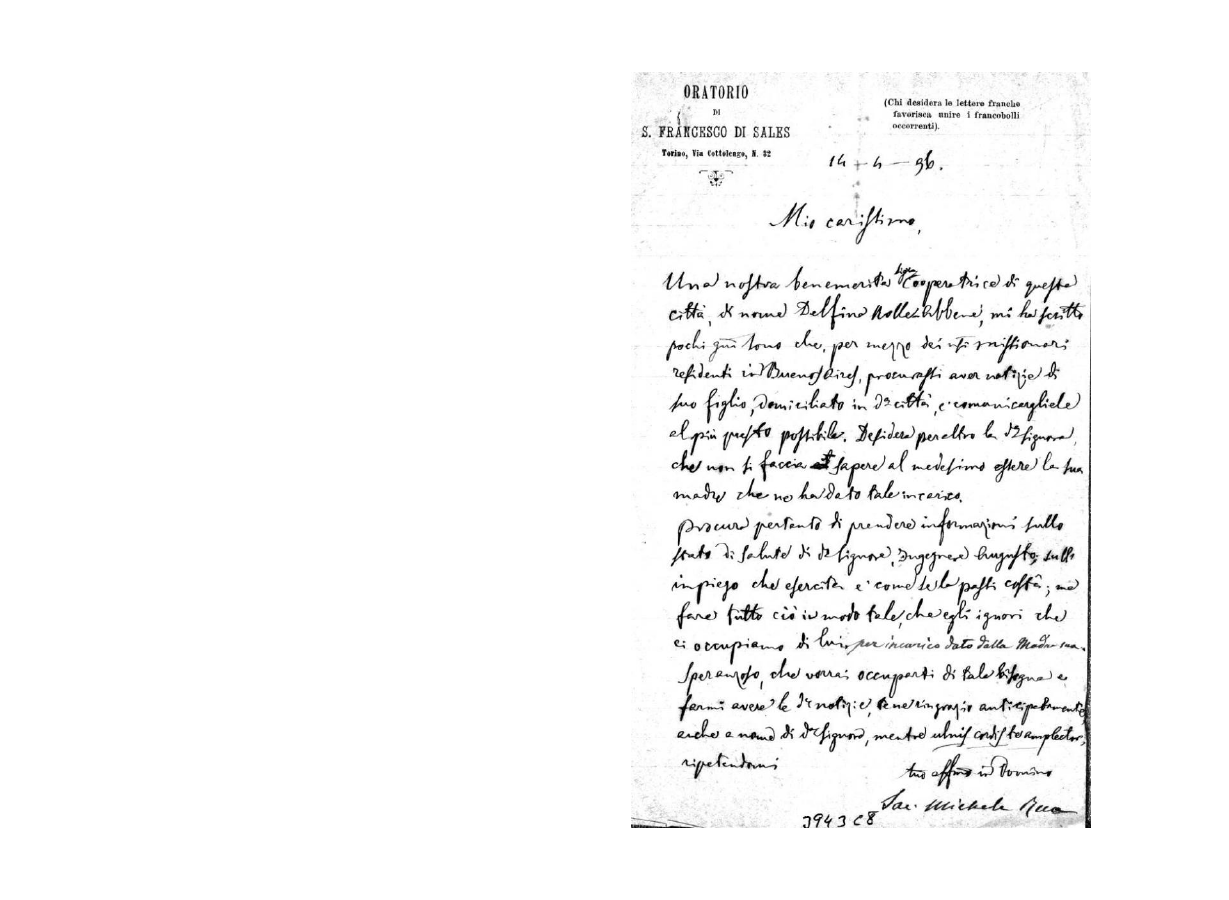 ORATORIO
DI
S. FRANCESCO DI SALES
Torino, Via Cottolengo, N. 32
(Chi desidera le lettere franche
favorisca unire i francobolli
occorrenti).
14 - 4 - 96.
Mio carissimo,
Una nostra benemerita Sigra Cooperatrice di questa
città, di nome Delfina, mi ha scritto
pochi sono che, per mezzo dei missionari
residenti in Buenos Aires, procurassi aver notizie di
suo figlio, domiciliato in da città, e comunicargliele
al più presto possibile. Desidera peraltro la da Signora,
che non si faccia sapere al medesimo essere la sua
madre che ne ha dato tale incarico.
Procura pertanto di prendere informazioni sullo
stato di salute di do Signore, Ingegnere Augusto, sull'
impiego che esercita e come se la passi costà; ma
fare tutto ciò in modo tale, che egli ignori che
ci occupiamo di lui, per incarico dato dalla Madre sua.
Speranzoso, che vorrai occuparti di tale bisogna e
farmi avere le de notizie, te ne ringrazio anticipatamente,
anche a nome di da Signora, mentre ulnis cordis te amplector,
ripetendomi
tuo affmo in Domino
Sac. Michele Rua
3943 C8